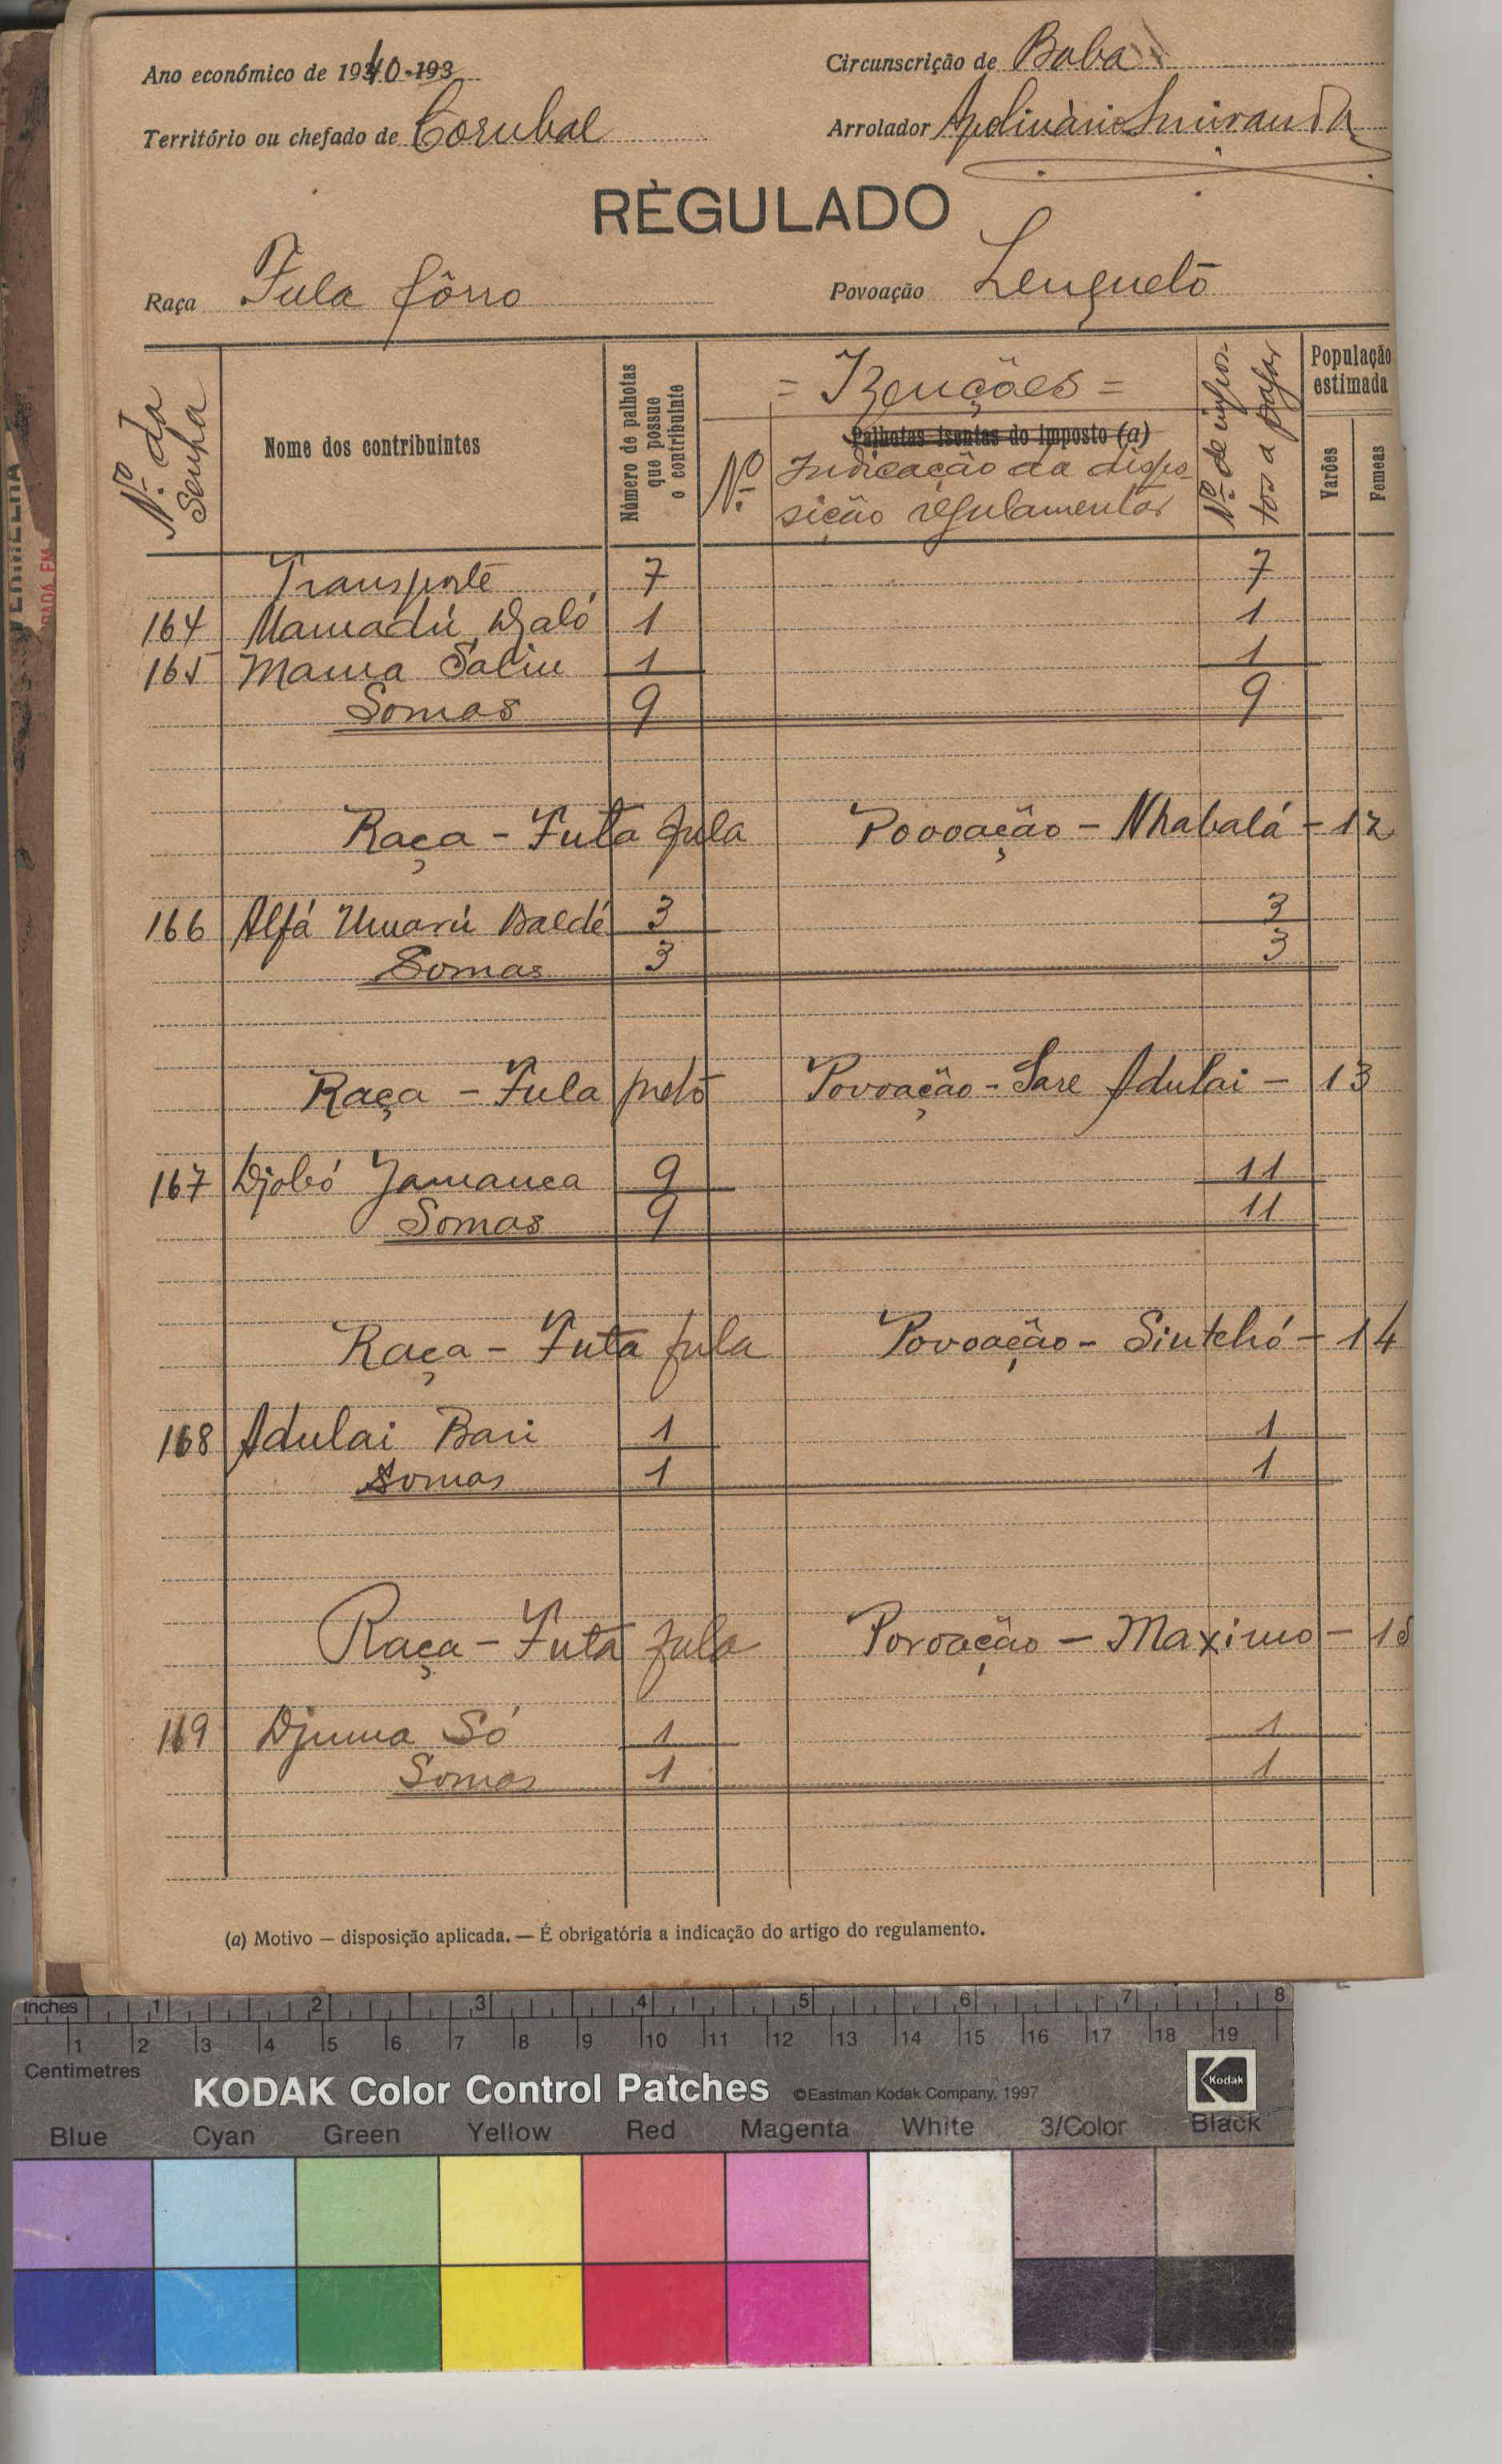 Ano económico de 1940-193
Circunscrição de Buba
Território ou chefado de Corubal
Arrolador Apolinário Miranda
RÉGULADO
Raça Fula fôrro
Povoação Lenguetó
Nº da Senha
Nome dos contribuintes
Número de palhotas que possue o contribuinte
= Izenções =
Palhotas isentas do imposto (a)
Nº
Indicação da dispo-
sição regulamentar
Nº de impos-
tos a pagar
População estimada
Varões
Femeas
Transporte 7 7
164 Mamadú Djaló 1 1
165 Mama Saliu 1 1
Somas 9 9
Raça - Futa fula Povoação - Nhabalá - 12
166 Alfá Umarú Baldé 3 3
Somas 3 3
Raça - Fula preto Povoação - Sare Adulai - 13
167 Djobó Jamanca 9 11
Somas 9 11
Raça - Futa fula Povoação - Sintchó - 14
168 Adulai Bari 1 1
Somas 1 1
Raça - Futa fula Povoação - Maximo - 15
169 Djuma Só 1 1
Somas 1 1
(a) Motivo — disposição aplicada. — É obrigatória a indicação do artigo do regulamento.
Inches 1 2 3 4 5 6 7 8
1 2 3 4 5 6 7 8 9 10 11 12 13 14 15 16 17 18 19
Centimetres
KODAK Color Control Patches ©Eastman Kodak Company, 1997 Kodak
Blue Cyan Green Yellow Red Magenta White 3/Color Black